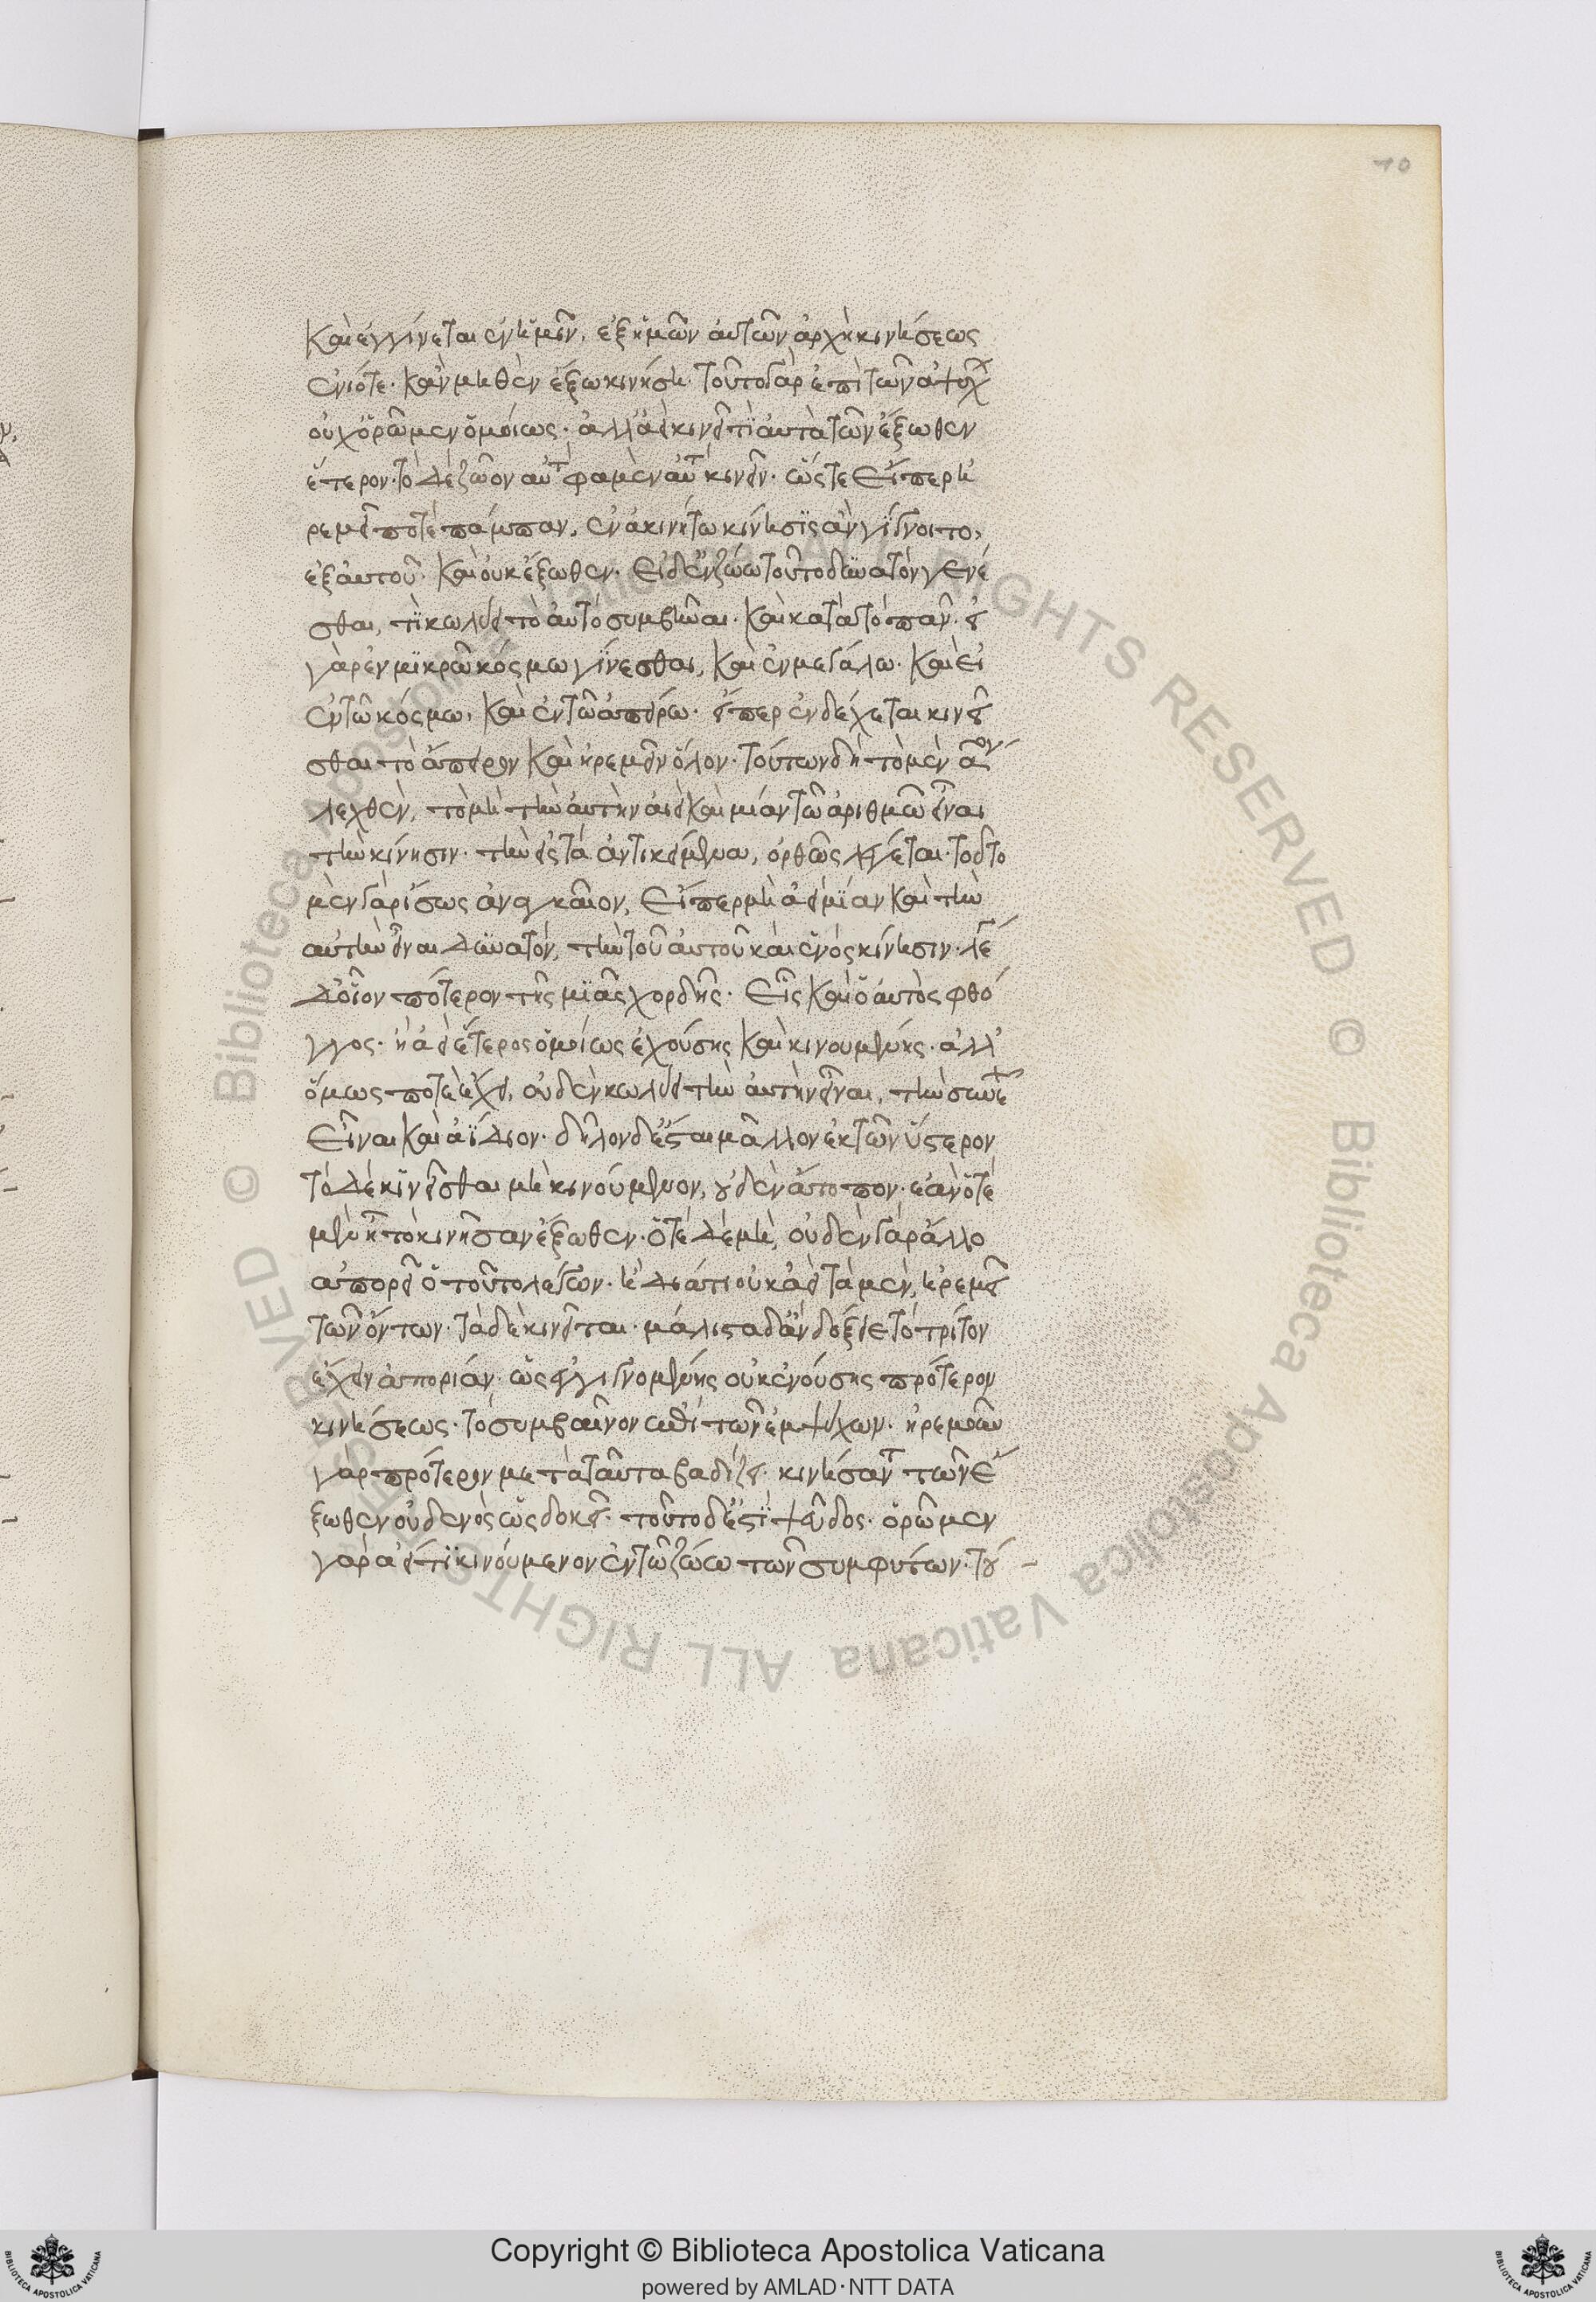 10
Καὶ ἐγγίνεται ἐν ἡμῖν, ἐξ ἡμῶν αὐτῶν ἀρχὴ κινήσεως
ἐνιότε· κἂν μηθὲν ἔξω κινήση· τοῦτο γὰρ ἐπὶ τῶν ἀψύχ
οὐχ ὁρῶμεν ὁμοίως· ἀλλ' ἀεὶ κινεῖ τὶ αὐτὰ τῶν ἔξωθεν
ἕτερον· τὸ δὲ ζῶον αὐτ φαμὲν αὑτ κινεῖν· ὥστε εἴπερ ἠ
ρεμεῖ ποτὲ πάμπαν, ἐν ἀκινήτω κίνησις ἂν γίγνοιτο,
ἐξ αὐτοῦ· καὶ οὐκ ἔξωθεν· εἰ δ' ἐν ζώω τοῦτο δυνατὸν γενέ
σθαι, τί κωλύει τὸ αὐτὸ συμβῆναι· καὶ κατὰ τὸ πᾶν· εἰ
γὰρ ἐν μικρῶ κόσμω γίνεσθαι, καὶ ἐν μεγάλω· καὶ εἰ
ἐν τῶ κόσμω, καὶ ἐν τῶ ἀπείρω· εἴπερ ἐνδέχεται κινεῖ
σθαι τὸ ἄπειρον καὶ ἠρεμεῖν ὅλον· τούτων δὴ τὸ μὲν αον
λεχθὲν, τὸ μὴ τὴν αὐτὴν ἀεὶ καὶ μίαν τῶ ἀριθμῶ εἶναι
τὴν κίνησιν· τὴν εἰς τὰ ἀντικείμενα, ὀρθῶς λέγεται· τοῦτο
μὲν γὰρ ἴσως ἀναγκαῖον, εἴπερ μὴ ἀεὶ μίαν καὶ τὴν
αὐτὴν εἶναι δυνατὸν, τὴν τοῦ αὐτοῦ καὶ ἑνὸς κίνησιν· λέ
δ' οἷον πότερον τῆς μιᾶς χορδῆς· εἷς καὶ ὁ αὐτὸς φθό
γγος· ἢ ἀεὶ ἕτερος ὁμοίως ἐχούσης καὶ κινουμένης· ἀλλ'
ὅμως ποτὲ ἔχει, οὐδὲν κωλύει τὴν αὐτὴν εἶναι, τὴν συνε
εἶναι καὶ ἀΐδιον· δῆλον δ' ἔσται μᾶλλον ἐκ τῶν ὕστερον
τὸ δὲ κινεῖσθαι μὴ κινούμενον, οὐδὲν ἄτοπον· ἐὰν ὁτὲ
μὲν ᾖ τὸ κινῆσαν ἔξωθεν· ὁτὲ δὲ μή, οὐδὲν γὰρ ἄλλο
ἀπορεῖ ὁ τοῦτο λέγων· ἢ διατί οὐκ ἀεὶ τὰ μὲν, ἠρεμεῖ
τῶν ὄντων· τὰ δὲ κινεῖται· μάλιστα δ' ἂν δόξειε τὸ τρίτον
ἔχειν ἀπορίαν· ὡς ἐγγιγνομένης οὐκ ἐνούσης πρότερον
κινήσεως· τὸ συμβαῖνον ἐπὶ τῶν ἐμψύχων· ἠρεμοῦν
γὰρ πρότερον μετὰ ταῦτα βαδίζει· κινήσαντ τῶν ἔ
ξωθεν οὐδενὸς ὡς δοκεῖ· τοῦτο δ' ἐστὶ ψεῦδος· ὁρῶμεν
γὰρ ἀεί τι κινούμενον ἐν τῶ ζώω τῶν συμφύτων· τού
Copyright © Biblioteca Apostolica Vaticana
powered by AMLAD·NTT DATA